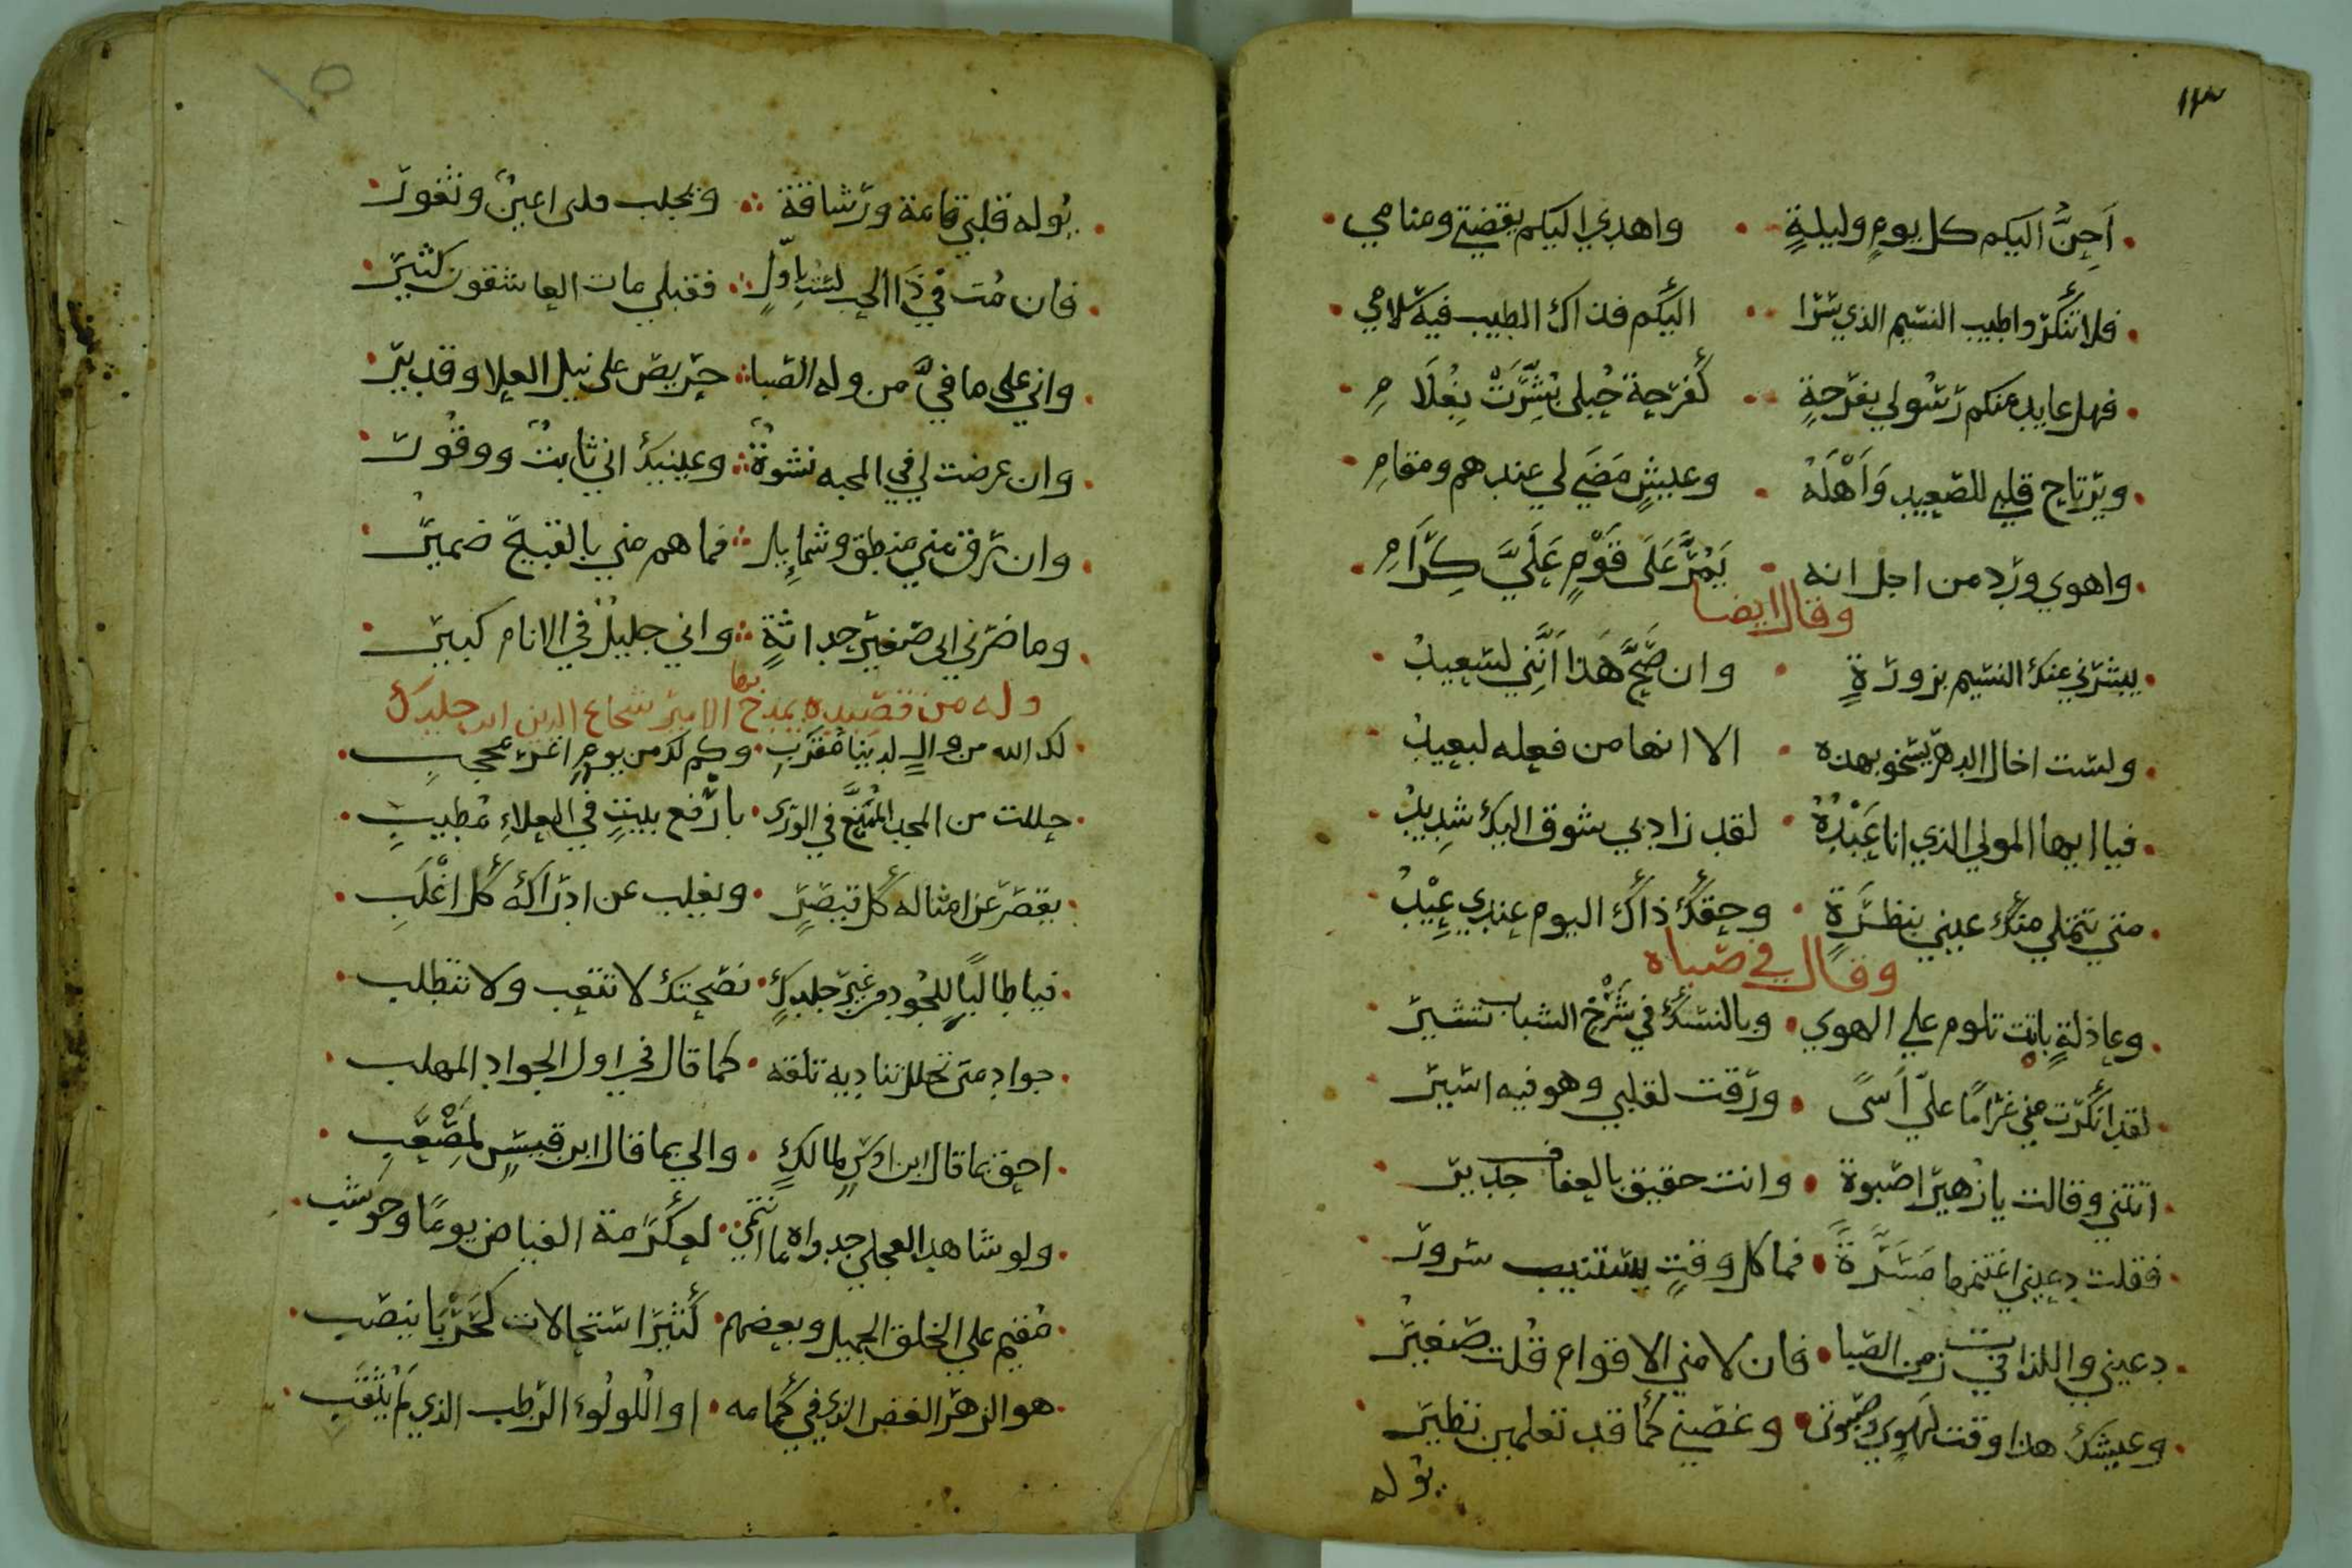 ١٣
أَحِنُّ اليكم كل يومٍ وليلةٍ واهدي اليكم يقضتي ومنامي
فلا تنكروا طيب النسيم الذي سرا اليكم فذاك الطيب فيه سلامي
فهل عايد منكم رسولي بفرحةٍ كفرحة حُبلى بُشِّرَتْ بِغُلَامِ
ويرتاح قلبي للصعيد وَأَهْلَهُ وعيشٍ مَضَى لي عندهم ومقامِ
واهوي ورد من اجل انه يَمُرُّ عَلَى قَوْمٍ عَلَيَّ كِرَامِ
وقال ايضا
يبشرني عنك النسيم بزورةٍ وان صَحَّ هَذا أَنَّنِي لسعيدُ
ولست اخال الدهر يسخو بهذه الا انها من فعله لبعيدُ
فيا ايها المولي الذي انا عَبْدُهُ لقد زاد بي شوق اليك شدِيدُ
متي تتملي منك عيني بنظرَةٍ وحقك ذاك اليوم عندي عِيْدُ
وقال في صباه
وعاذلةٍ باتت تلوم علي الهوي وبالنسك في شَرْخ الشباب تشير
لقد انكرت مني غرامًا علىّ أسىً ورقت لقلبي وهو فيه اسير
اتتني وقالت يا زهير اصبوة وانت حقيق بالعفاف جدير
فقلت دعيني اغتنمها مَسَرَّةً فما كل وقتٍ يستتيب سرور
دعيني واللذات في زمن الصبا فان لامني الاقوام قُلت صغيرُ
وعيشك هذا وقت لهوي وصبوتي وغصني كما قد تعلمين نظير
يوله
١٥
يُوله قلبي قامة ورشاقة ويخلب قلبي اعينٌ وثغور
فان مُت في ذَا الحب لستُ باولٍ فقبلي مات العاشقون كثير
واني على ما فيَّ من وله الصبا حريص على نيل العلا وقدير
وان عرضت لي في المحبه نشوةٌ وعينيك اني ثابتٌ ووقُور
وان رق مني منطق وشمايِل فما هم مني بالقبيح ضمير
وما ضرني اني صغير حداثةٍ واني جليلٌ في الانام كبير
وله من قصيده يمدح بها الامير شجاع الدين ابن جلدك
لك الله من والٍ لدينا مُقربِ وكم لك من يومٍ اغر محجبِ
حللت من المجد المُمَنَّع في الورى بارْفع بيتٍ في العلاءِ مُطيبِ
يقصر عن امثاله كل قيصرٍ ويغلب عن ادراكه كل اغْلَبِ
فيا طالبًا للجُود من غير جلدكٍ نصحتك لا تتعب ولا تتطلب
جواد متى تحلل بناديه تلقه كما قال في اول الجواد المهلب
احق بما قال ابن اوسٍ لمالكٍ والي بما قال ابن قيسٍ لمصْعَبِ
ولو شاهد العجلي جدواه ما انتمى لعكرمة الفياض يومًا وحوشب
مُقيم على الخلق الجميل وبعضهم كثير استحالات كحَرْبَا تنصب
هو الزهر الغض الذي في كمامه او اللولُوء الرطب الذي لم يُثقَبِ